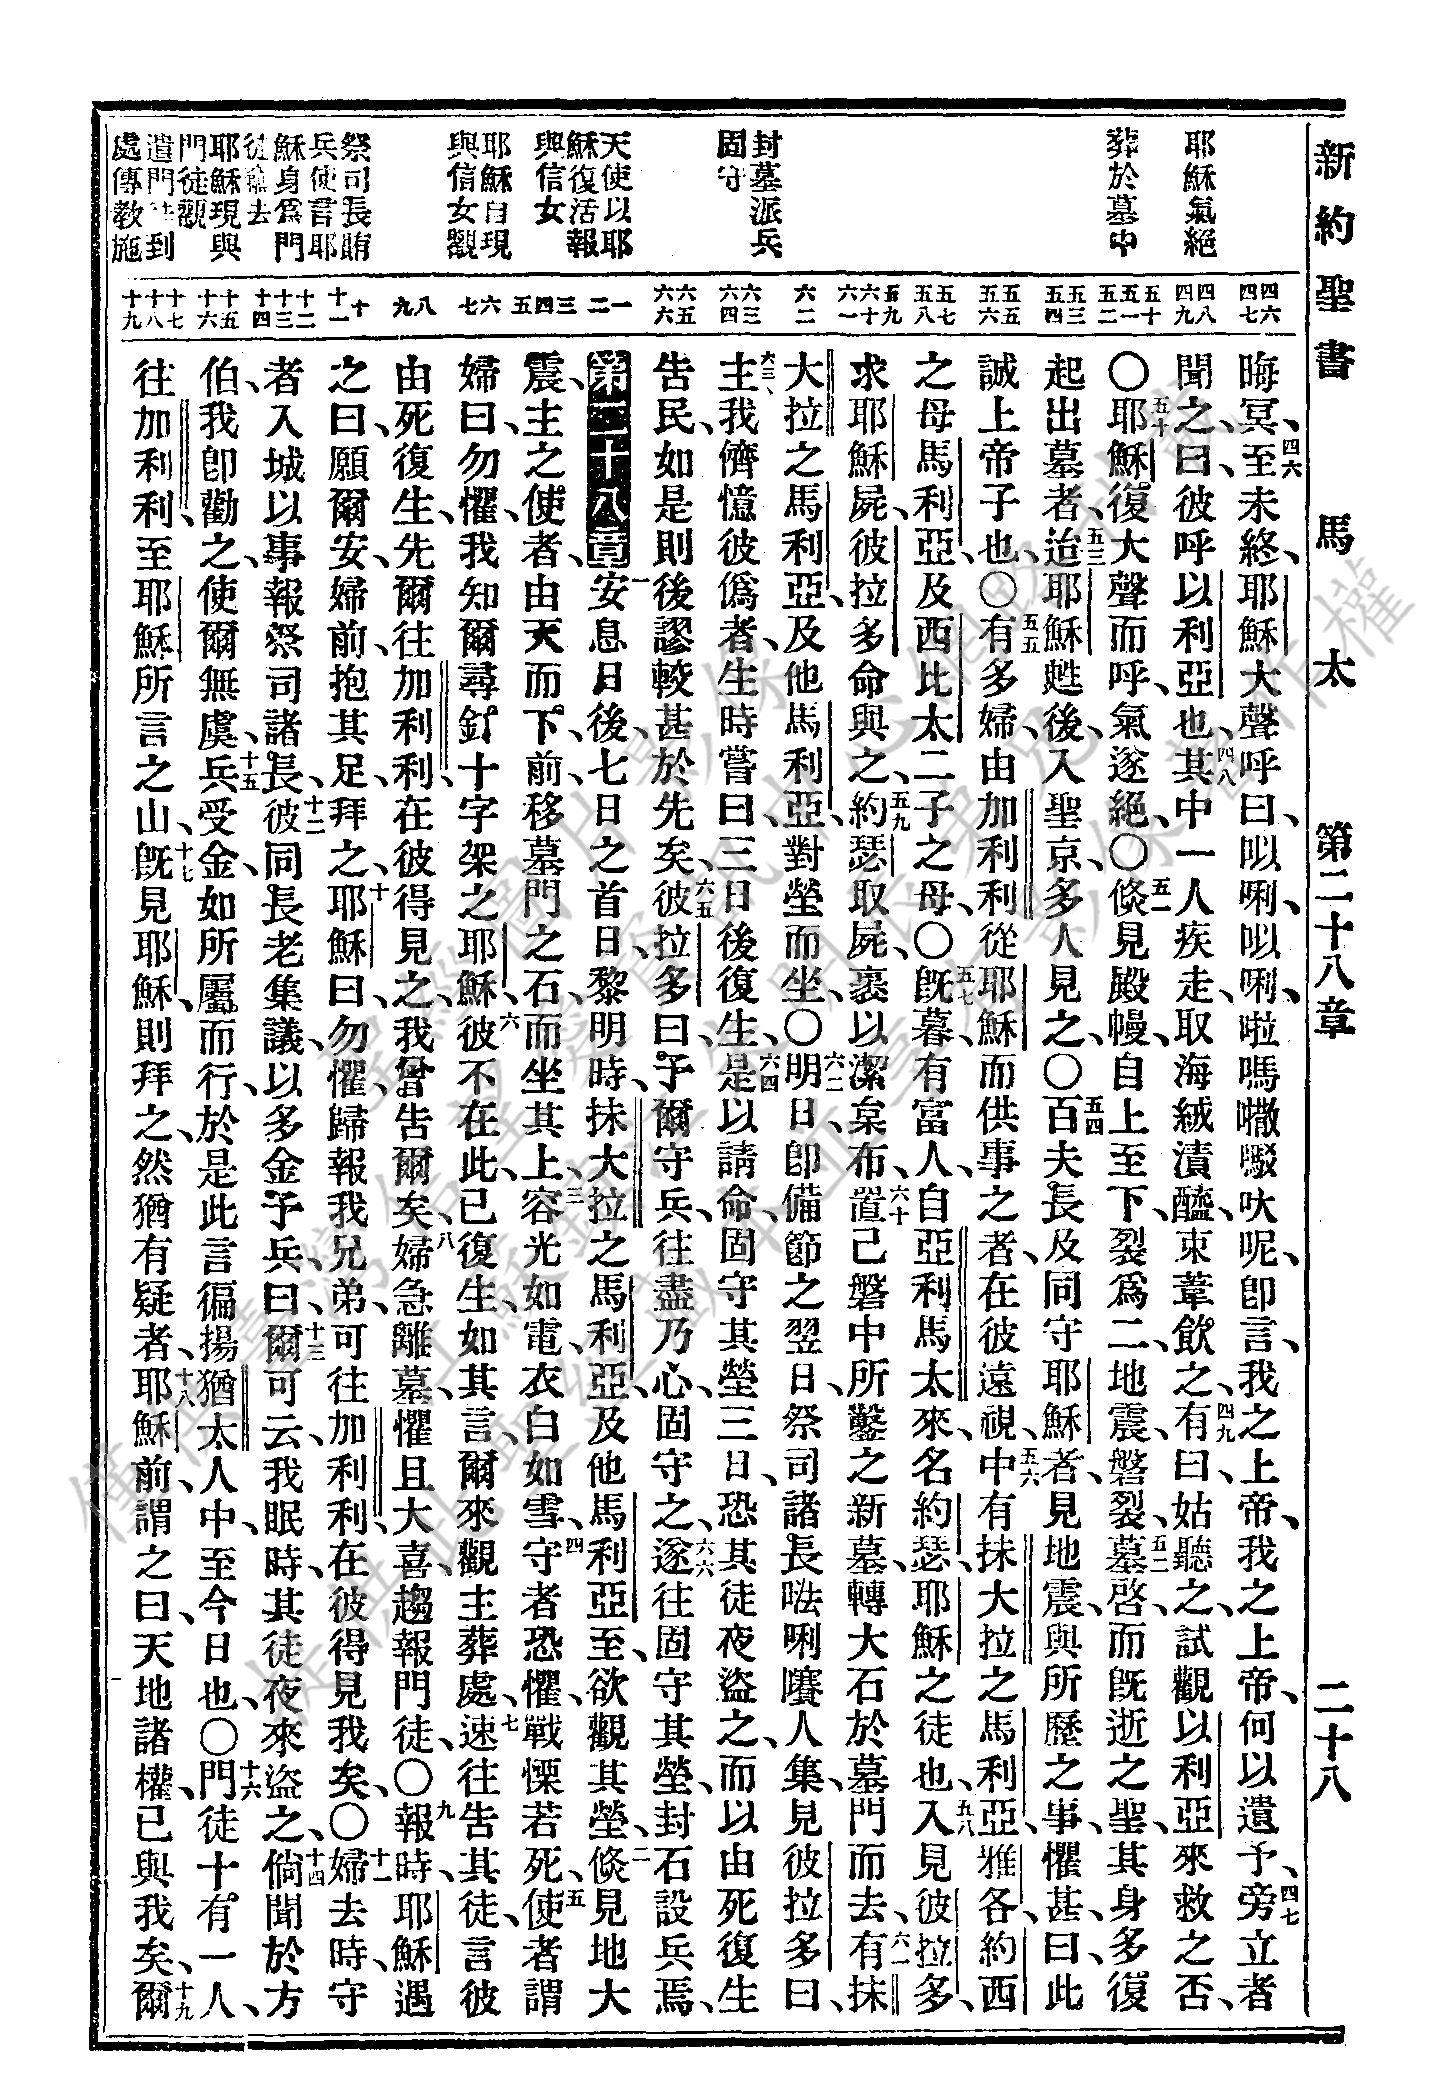 新約聖書 馬太 第二十八章 二十八
耶穌氣絕
葬於墓中
封墓派兵
固守
天使以耶
穌復活報
與信女
耶穌自現
與信女觀
祭司長賄
兵使言耶
穌身爲門
徒偷去
耶穌現與
門徒觀
遣門徒到
處傳教施
四六 四七
四八 四九
五十 五一 五二
五三 五四
五五 五六
五七 五八
五九 六十 六一
六二
六三 六四
六五 六六
一 二
三 四 五
六 七
八 九
十 十一
十二 十三 十四
十五 十六
十七 十八 十九
晦冥、四六至未終、耶穌大聲呼曰、㕥唎、㕥唎、啦嗎㘔㗕吙呢、卽言、我之上帝、我之上帝、何以遺予、四七旁立者
聞之、曰、彼呼以利亞也、四八其中一人疾走、取海絨漬醯、束葦飮之、四九有曰、姑聽之、試觀以利亞來救之否、
〇五十耶穌復大聲而呼、氣遂絕、〇五一倐見殿幔、自上至下、裂爲二、地震、磐裂、五二墓啓、而旣逝之聖、其身多復
起出墓者、五三迨耶穌甦後、入聖京、多人見之、〇五四百夫長及同守耶穌者、見地震、與所歷之事、懼甚、曰、此
誠上帝子也、〇五五有多婦、由加利利從耶穌而供事之者、在彼遠視、五六中有抹大拉之馬利亞、雅各、約西
之母馬利亞、及西比太二子之母、〇五七旣暮、有富人、自亞利馬太來、名約瑟、耶穌之徒也、五八入見彼拉多、
求耶穌屍、彼拉多命與之、五九約瑟取屍、裹以潔枲布、六十置己磐中所鑿之新墓、轉大石於墓門而去、六一有抹
大拉之馬利亞、及他馬利亞、對塋而坐、〇六二明日、卽備節之翌日、祭司諸長𠵽唎㘔人集、見彼拉多曰、
六三主、我儕憶彼僞者、生時嘗曰、三日後復生、六四是以請命、固守其塋三日、恐其徒夜盜之、而以由死復生
告民、如是則後謬較甚於先矣、六五彼拉多曰、予爾守兵、往盡乃心、固守之、六六遂往固守其塋、封石設兵焉、
第二十八章 一安息日後、七日之首日、黎明時、抹大拉之馬利亞、及他馬利亞至、欲觀其塋、二倐見地大
震、主之使者、由天而下、前、移墓門之石、而坐其上、三容光如電、衣白如雪、四守者恐懼、戰慄若死、五使者謂
婦曰、勿懼、我知爾尋釘十字架之耶穌、六彼不在此、已復生、如其言、爾來觀主葬處、七速往告其徒、言彼
由死復生、先爾往加利利、在彼得見之、我曾告爾矣、八婦急離墓、懼且大喜、趨報門徒、〇九報時、耶穌遇
之曰、願爾安、婦前、抱其足、拜之、十耶穌曰、勿懼、歸報我兄弟、可往加利利、在彼得見我矣、〇十一婦去時、守
者入城、以事報祭司諸長、十二彼同長老集議、以多金予兵、曰、十三爾可云、我眠時、其徒夜來盜之、十四倘聞於方
伯、我卽勸之、使爾無虞、十五兵受金、如所屬而行、於是此言徧揚猶太人中、至今日也、〇十六門徒十有一人、
往加利利、至耶穌所言之山、十七旣見耶穌、則拜之、然猶有疑者、十八耶穌前、謂之曰、天地諸權、已與我矣、十九爾